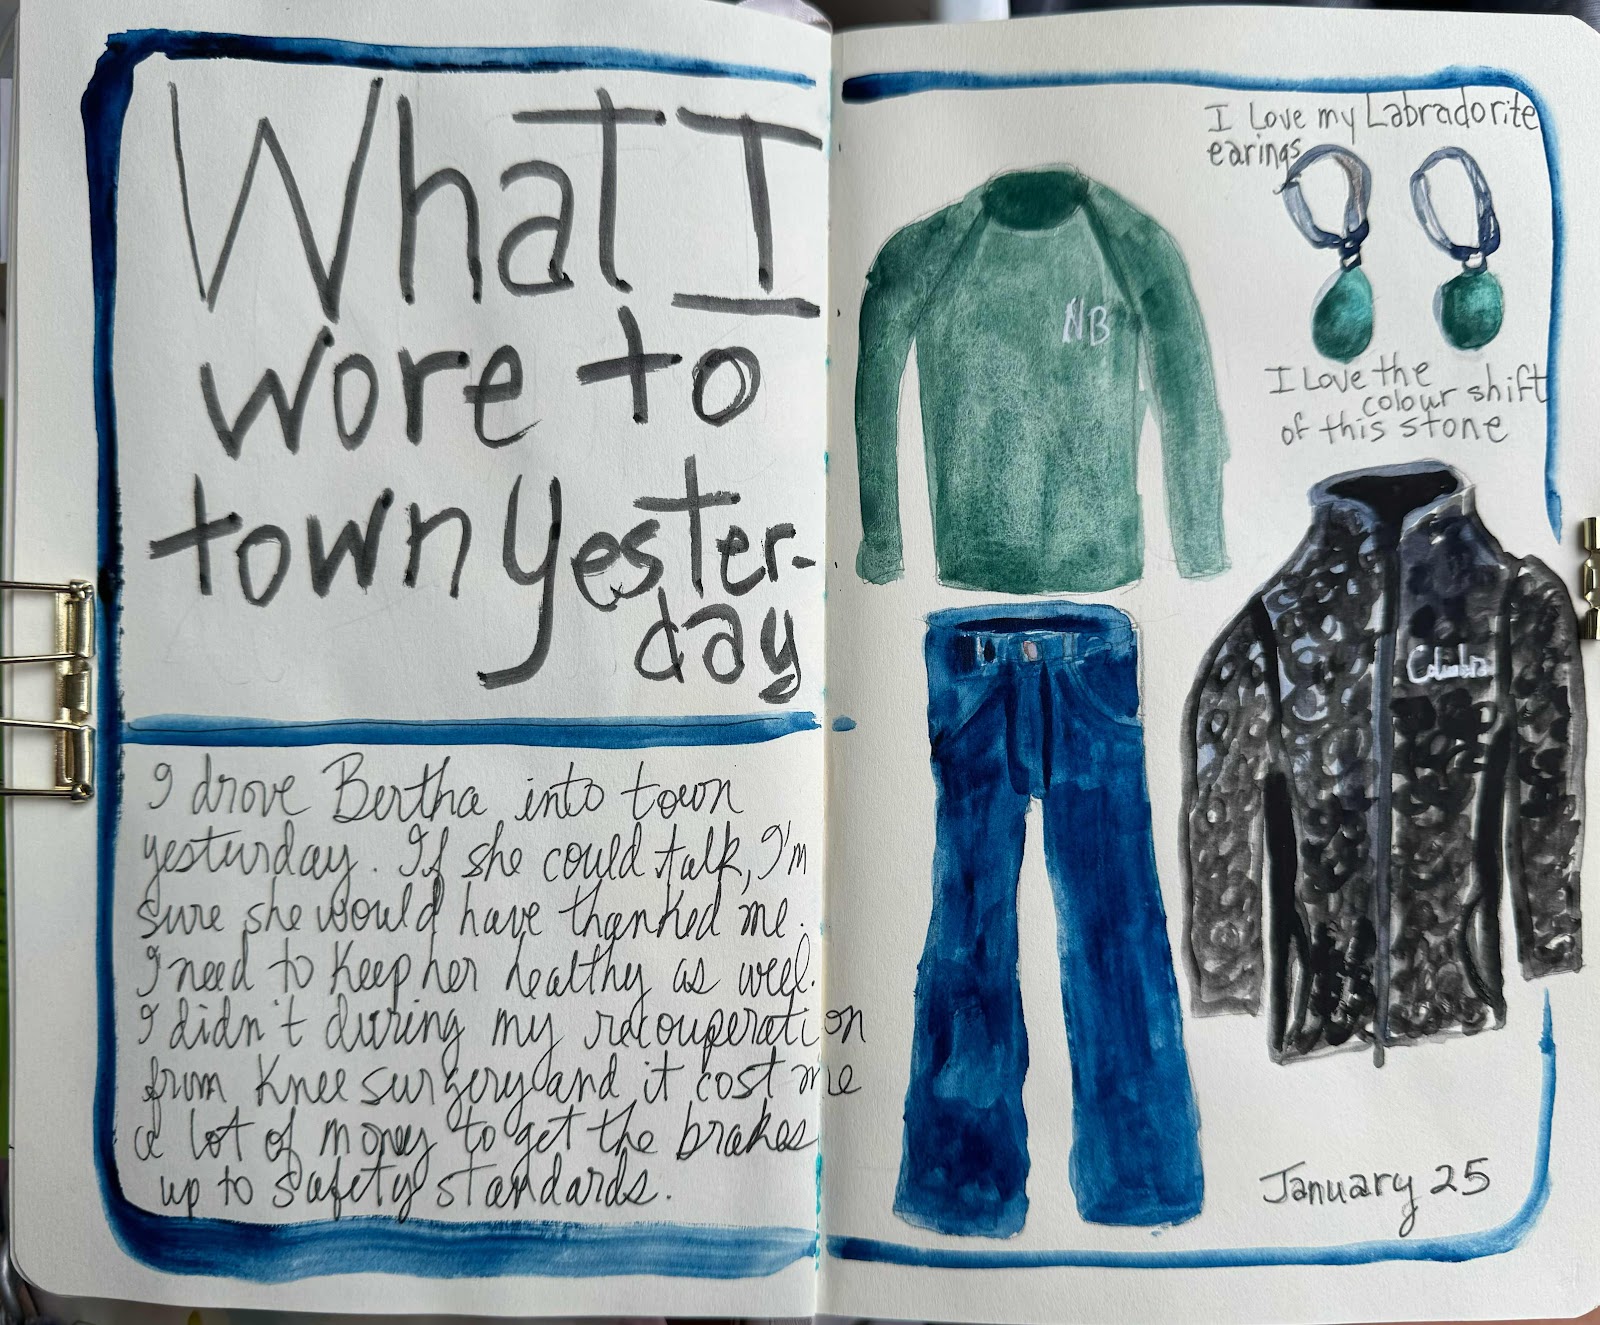 What I
wore to
town yester-
day
I drove Bertha into town
yesturday. If she could talk, I'm
sure she would have thanked me.
I need to keep her healthy as well.
I didn't during my recouperation
from knee surgery and it cost me
a lot of money to get the brakes
up to safety standards.
I Love my Labradorite
earings
NB
I Love the
colour shift
of this stone
Columbia
January 25